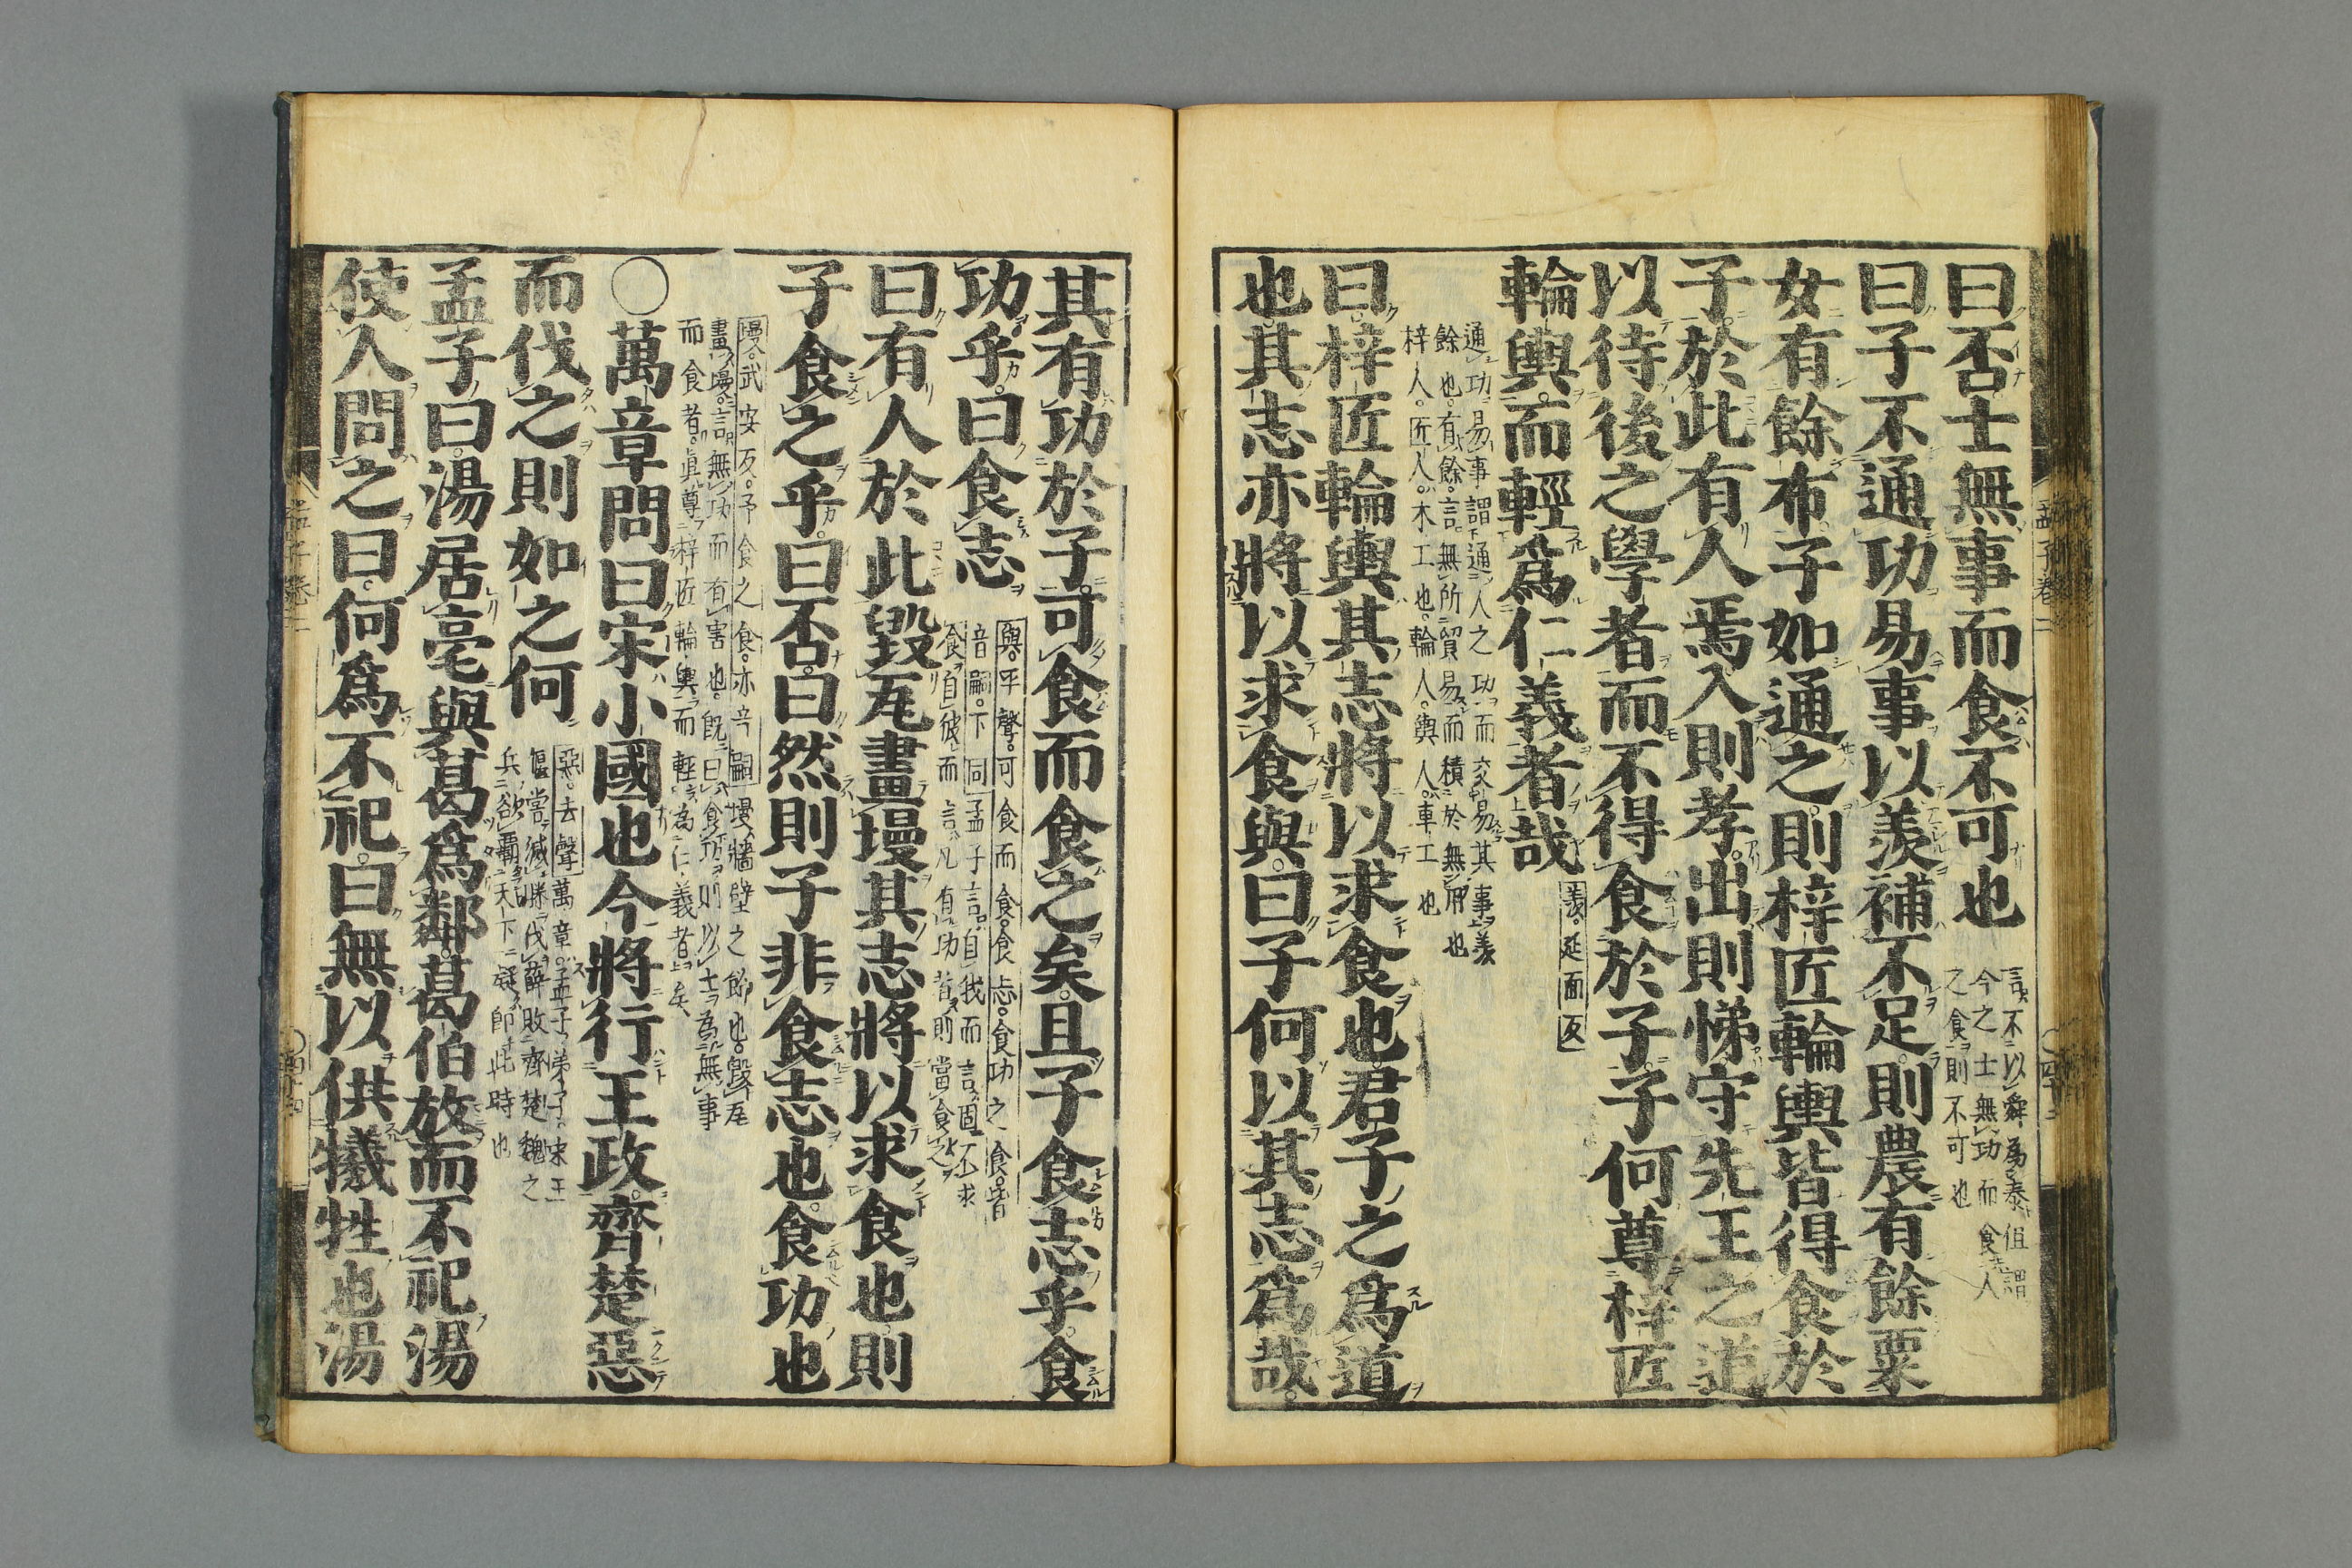 曰否士無事而食不可也
言不以舜爲泰但謂
今之士無功而食人
之食則不可也
曰子不通功易事以羨補不足則農有餘粟
女有餘布子如通之則梓匠輪輿皆得食於
子於此有人焉入則孝出則悌守先王之道
以待後之學者而不得食於子子何尊梓匠
輪輿而輕爲仁義者哉
羨延面反
通功易事謂通人之功而交易其事羨
餘也有餘言無所貿易而積於無用也
梓人匠人木工也輪人輿人車工也
曰梓匠輪輿其志將以求食也君子之爲道
也其志亦將以求食與曰子何以其志爲哉
其有功於子可食而食之矣且子食志乎食
功乎曰食志
與平聲可食而食食志食功之食皆
音嗣下同孟子言自我而言固不求
食自彼而言凡有功者則當食之
曰有人於此毀瓦畫墁其志將以求食也則
子食之乎曰否曰然則子非食志也食功也
墁武安反子食之食亦音嗣墁牆壁之飾也毀瓦
畫墁言無功而有害也既曰食功則以士爲無事
而食者眞尊梓匠輪輿而輕為仁義者矣
○萬章問曰宋小國也今將行王政齊楚惡
而伐之則如之何
惡去聲萬章孟子弟子宋王
偃嘗滅滕伐薛敗齊楚魏之
兵欲霸天下疑即此時也
孟子曰湯居亳與葛爲鄰葛伯放而不祀湯
使人問之曰何爲不祀曰無以供犧牲也湯
孟子卷二